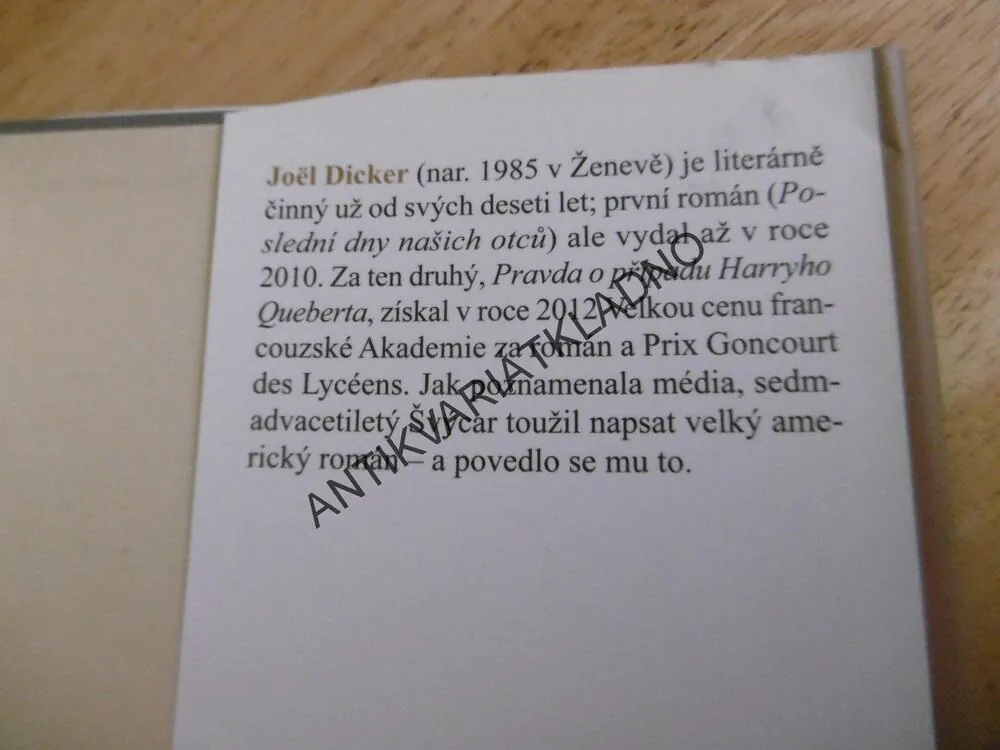 Joël Dicker (nar. 1985 v Ženevě) je literárně
činný už od svých deseti let; první román (Po-
slední dny našich otců) ale vydal až v roce
2010. Za ten druhý, Pravda o případu Harryho
Queberta, získal v roce 2012 Velkou cenu fran-
couzské Akademie za román a Prix Goncourt
des Lycéens. Jak poznamenala média, sedm-
advacetiletý Švýcar toužil napsat velký ame-
rický román – a povedlo se mu to.
ANTIKVARIATKLADNO